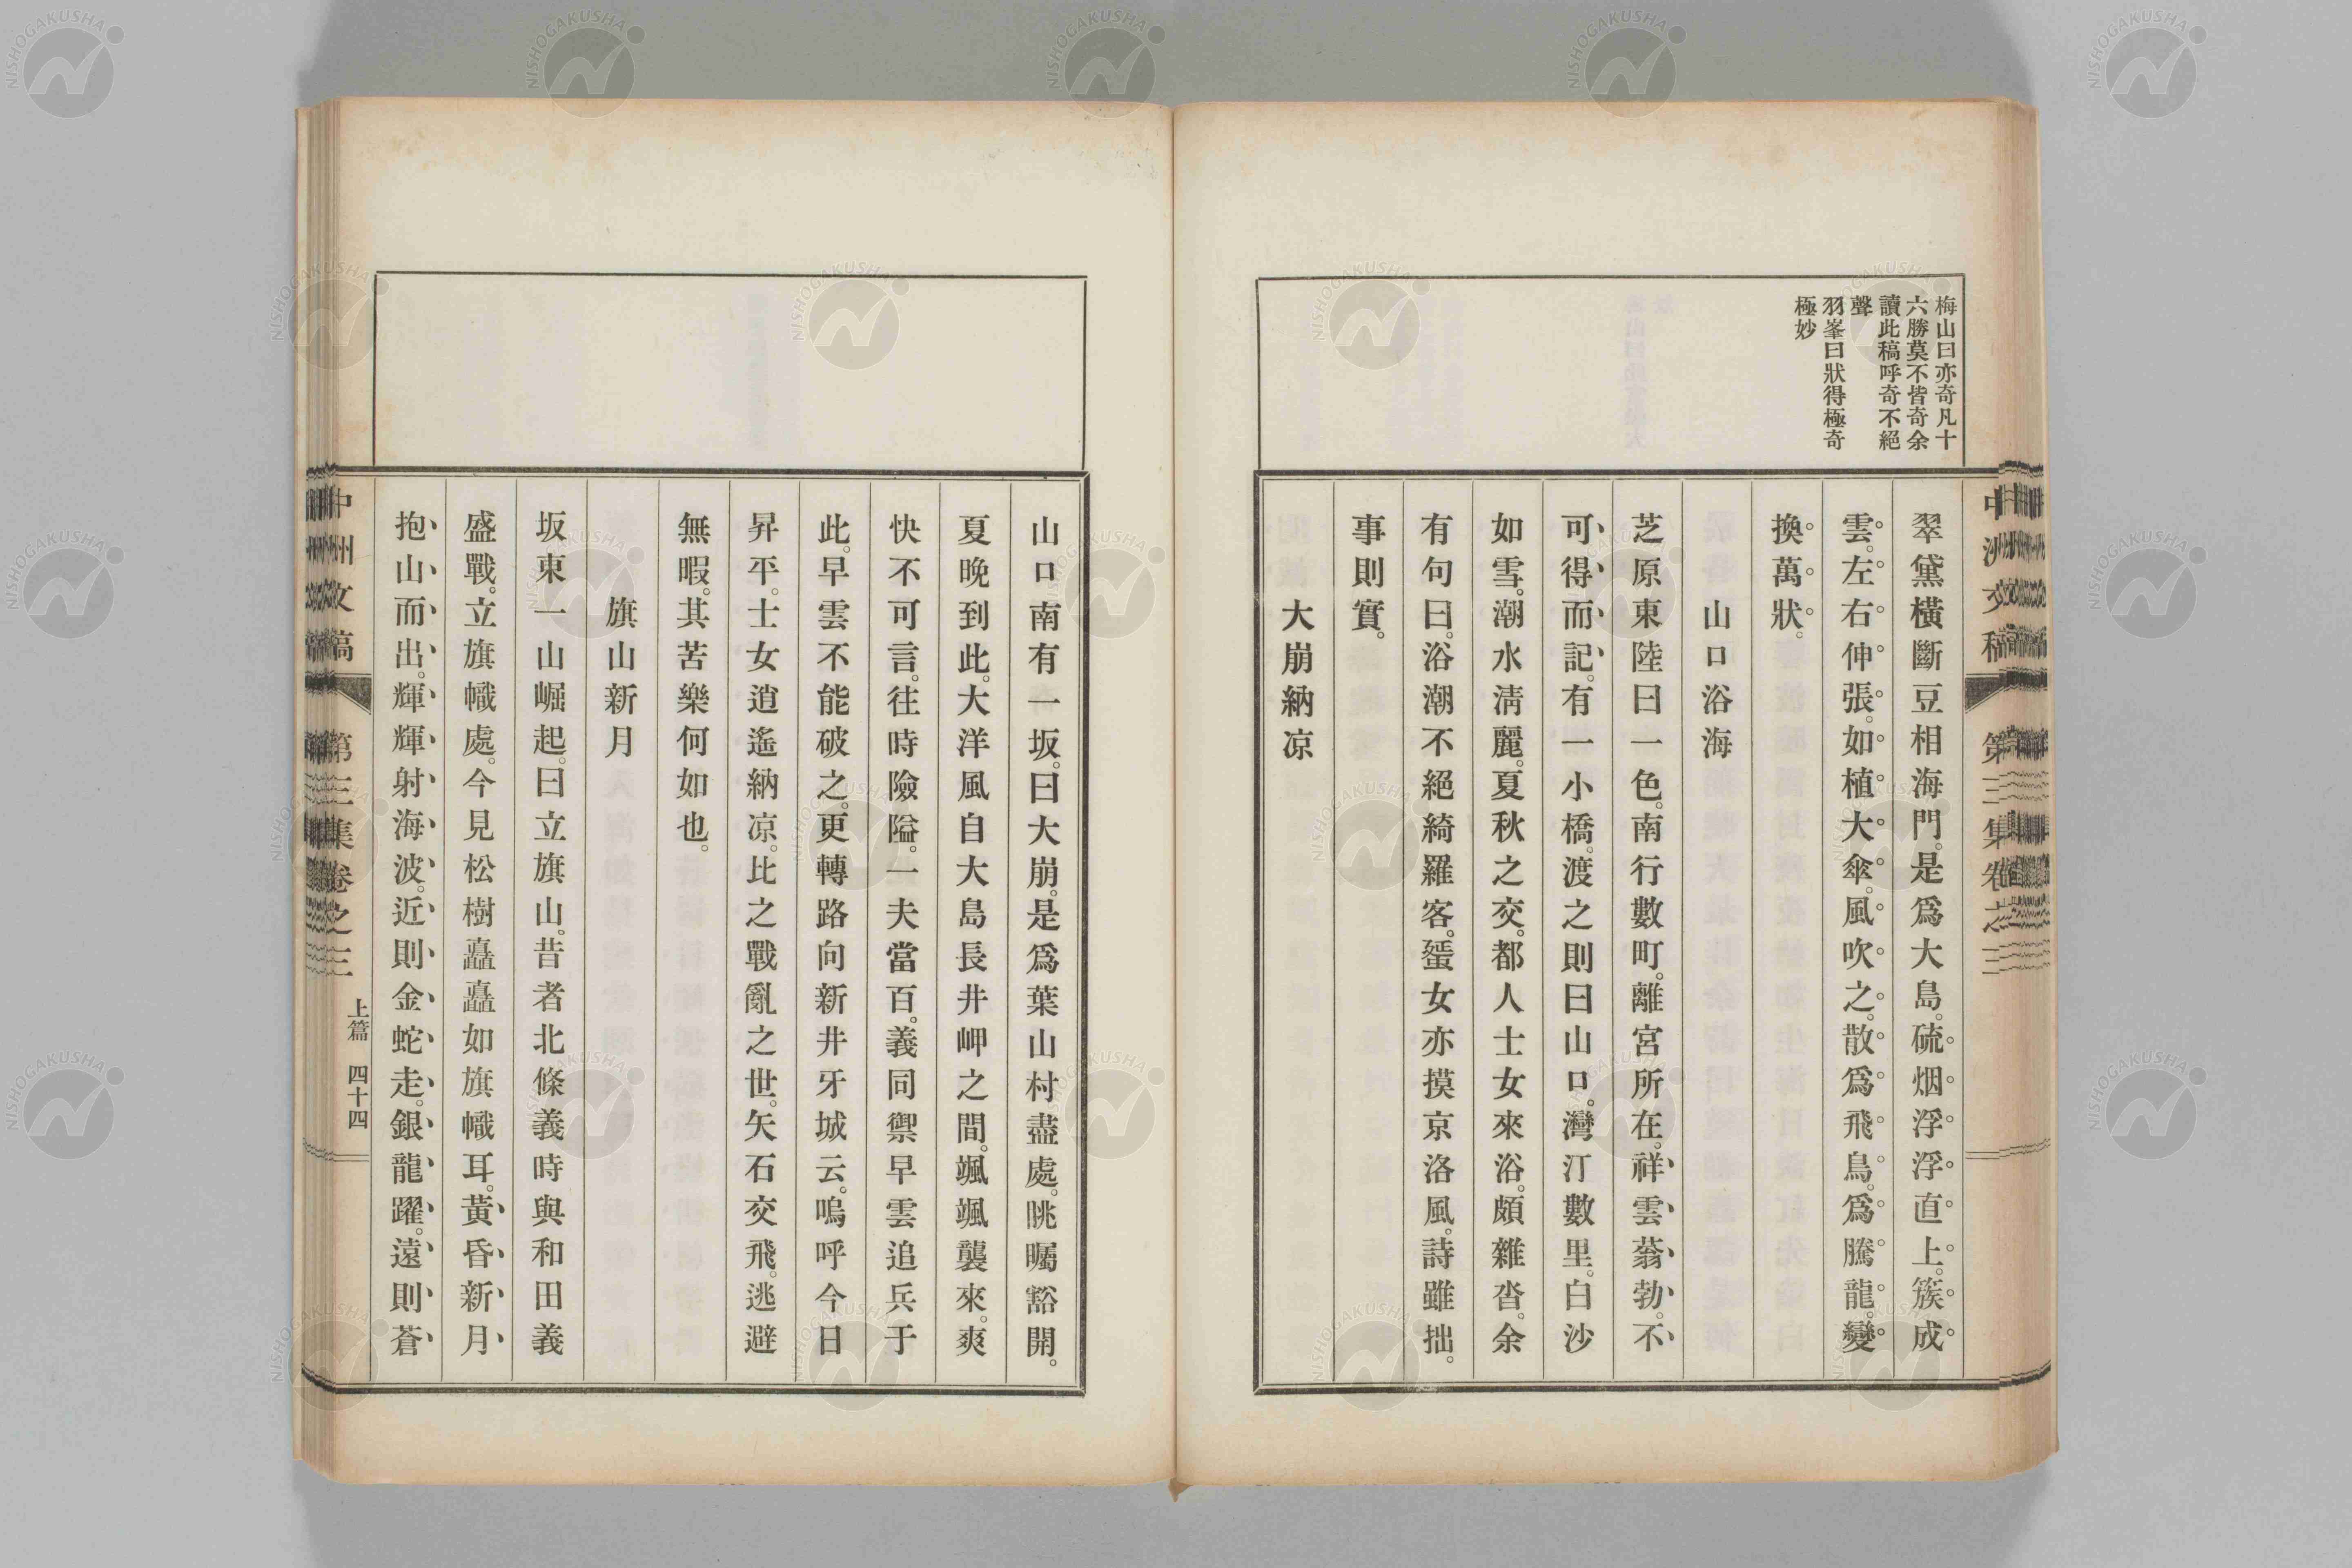 梅山曰亦奇凡十
六勝莫不皆奇余
讀此稿呼奇不絕
聲
羽峯曰狀得極奇
極妙
翠黛橫斷豆相海門。是爲大島。硫烟浮浮直上。簇成
雲。左右伸張。如植大傘。風吹之。散爲飛鳥。爲騰龍。變
換萬狀。
山口浴海
芝原東陸曰一色。南行數町。離宮所在。祥雲蓊勃。不
可得而記。有一小橋。渡之則曰山口。灣汀數里。白沙
如雪。潮水淸麗。夏秋之交。都人士女來浴。頗雜沓。余
有句曰。浴潮不絕綺羅客。蜑女亦摸京洛風。詩雖拙。
事則實。
大崩納凉
山口南有一坂。曰大崩。是爲葉山村盡處。眺矚豁開。
夏晚到此。大洋風自大島長井岬之間。颯颯襲來。爽
快不可言。往時險隘。一夫當百。義同禦早雲追兵于
此。早雲不能破之。更轉路向新井牙城云。嗚呼今日
昇平。士女逍遙納凉。比之戰亂之世。矢石交飛。逃避
無暇。其苦樂何如也。
旗山新月
坂東一山崛起。曰立旗山。昔者北條義時與和田義
盛戰。立旗幟處。今見松樹矗矗如旗幟耳。黃昏新月
抱山而出。輝輝射海波。近則金蛇走。銀龍躍。遠則蒼
中州文稿 第三集卷之三 上篇 四十四